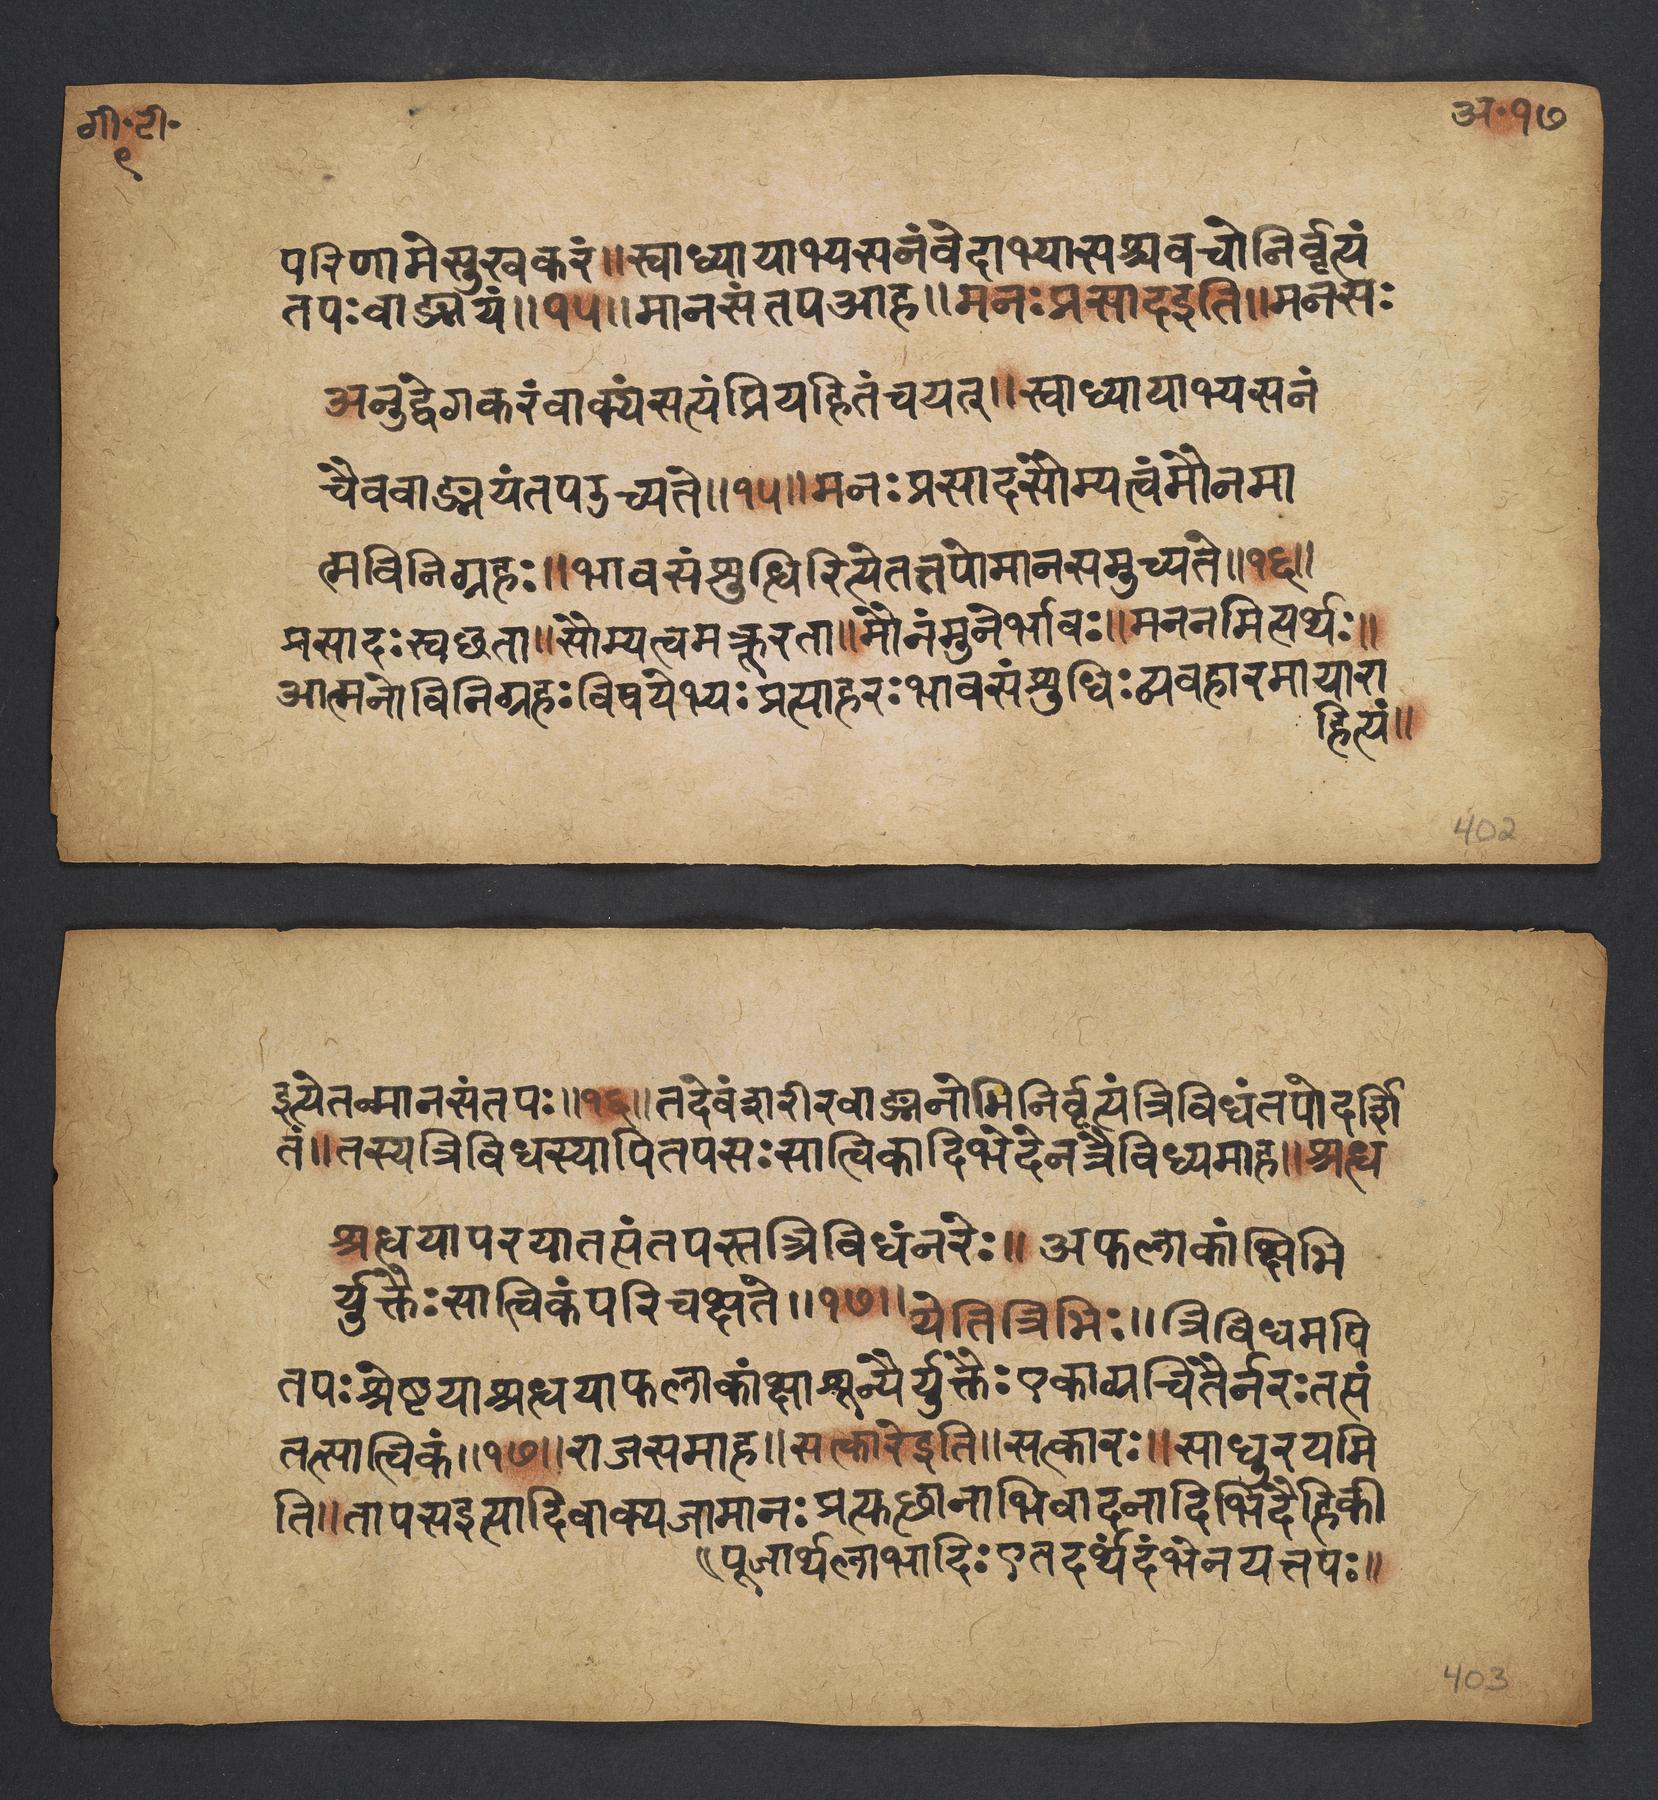 गी॰टी॰
अ॰१७
९
परिणामेसुखकरं॥स्वाध्यायाभ्यसनंवेदाभ्यासश्चवचोनिर्वृत्यं
तपःवाङ्मयं॥१५॥मानसंतपआह॥मनःप्रसादइति॥मनसः
अनुद्वेगकरंवाक्यंसत्यंप्रियहितंचयत्॥स्वाध्यायाभ्यसनं
चैववाङ्मयंतपउच्यते॥१५॥मनःप्रसादसौम्यत्वंमौनमा
त्मविनिग्रहः॥भावसंशुधिरित्येतत्तपोमानसमुच्यते॥१६॥
प्रसादःस्वछता॥सौम्यत्वमक्रूरता॥मौनंमुनेर्भावः॥मननमित्यर्थः॥
आत्मनोविनिग्रहःविषयेभ्यःप्रत्याहरःभावसंशुधिःव्यवहारमायारा
हित्यं॥
402
इत्येतन्मानसंतपः॥१६॥तदेवंशारीरवाङ्मनोभिनिर्वृत्यंत्रिविधंतपोदर्शि
तं॥तस्यत्रिविधस्यापितपसःसात्विकादिभेदेनत्रैविध्यमाह॥श्रध
श्रधयापरयातप्तंतपस्तत्रिविधंनरेः॥अफलाकांक्षिभि
र्युक्तैःसात्विकंपरिचक्षते॥१७॥
येतित्रिभिः॥त्रिविधमपि
तपःश्रेष्टयाश्रधयाफलाकांक्षाशून्यैर्युक्तैःएकाग्रचितैर्नरःतप्तं
तत्सात्विकं॥१७॥राजसमाह॥सत्कारेइति॥सत्कारः॥साधुरयमि
ति॥तापसइत्यादिवाक्यजामानःप्रत्यछानाभिवादनादिर्भिदैहिकी
पूजार्थलाभादिःएतदर्थंदंभेनयत्तपः॥
403